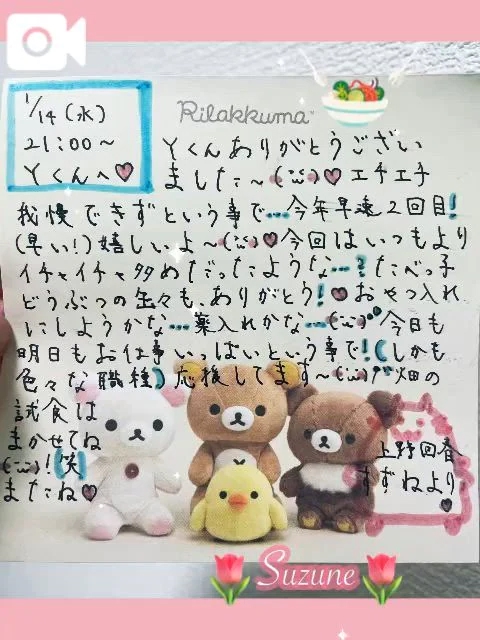 1/14(水)
21:00~
Yくんへ♡
Rilakkuma™
Yくんありがとうござい
ました~(¨̮)♡エチエチ
我慢できずという事で…今年早速2回目!
(早い!)嬉しいよ~(¨̮)♡今回はいつもより
イチャイチャ多めだったような…?たべっ子
どうぶつの缶々も、ありがとう!♡おやつ入れ
にしようかな…薬入れかな…(¨̮)今日も
明日もお仕事いっぱいという事で!(しかも
色々な職種)応援してます~(¨̮)畑の
試食は
まかせてね
(¨̮)!(笑)
またね♡
上野回春
すずねより
♡
Suzune